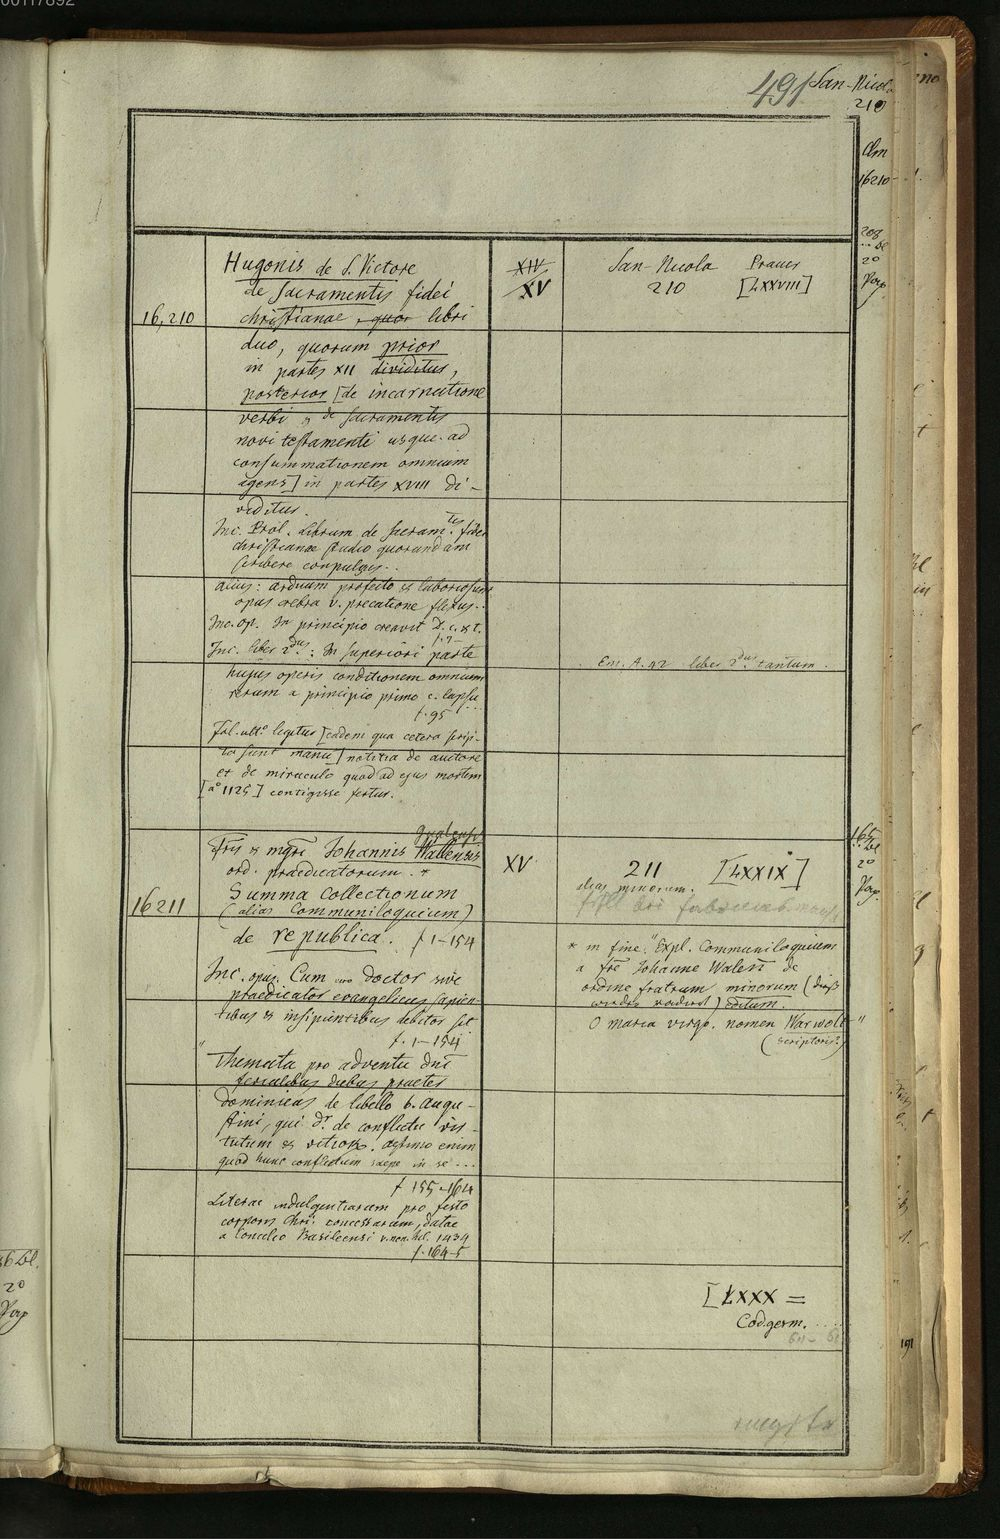 00117892
491 San-Nicola
210
Clm
16210
208
Bl
2°
Pap
16,210
Hugonis de S. Victore
de Sacramentis fidei
christianae quor libri
duo, quorum prior
in partes XII dividitur,
posterior [de incarnatione
verbi & de Sacramentis
novi testamenti usque ad
consummationem omnium
agens] in partes XVIII di-
viditus.
Inc. Prol. Librum de Sacramtis fidei
christianae studio quorundam
scribere conpulsus..
alius: arduum profecto & laboriosum
opus crebra v. precatione flexus..
Inc. op. In principio creavit D. c. & t.
Inc. liber 2dus: In superiori parte
hujus operis conditionem omnium
rerum a principio primo c. lapsu...
f. 95
Fol. ult° legitur [eadem qua cetera scrip-
ta sunt manu] notitia de auctore
et de miraculo quod ad ejus mortem
[a° 1125] contigisse fertur.
XIV
XV
San-Nicola Praues
210 [LXXVIII]
Em. A. 92 liber 2dus tantum.
16211
gualensis
Fris & mgri Johannis Wallensis
ord. praedicatorum. *
Summa Collectionum
(alias Communiloquium)
de republica. f 1-154
Inc. opus. Cum doctor sive
praedicator evangelicus sapien-
tibus & insipientibus debitor sit
f. 1-154
Themata pro adventu dni
ferialibus diebus praeter
dominicas de libello b. Augu-
stini, qui dr. de conflictu vir-
tutum & vitior. aestimo enim
quod hunc conflictum saepe in se ...
f 155-164
Literae indulgentiarum pro festo
corporis Chri. concessarum, datae
a Concilio Basileensi 1434
f. 164-5
XV
211 [LXXIX]
alias minorum.
* in fine: "Expl. Communiloquium
a fre Johanne Walensi de
ordine fratrum minorum
) editum.
O maria virgo. nomen Warwolt"
(scriptoris?)
165
Bl
2°
Pap.
[LXXX =
Cod. germ. ....
Bl.
2°
Pap